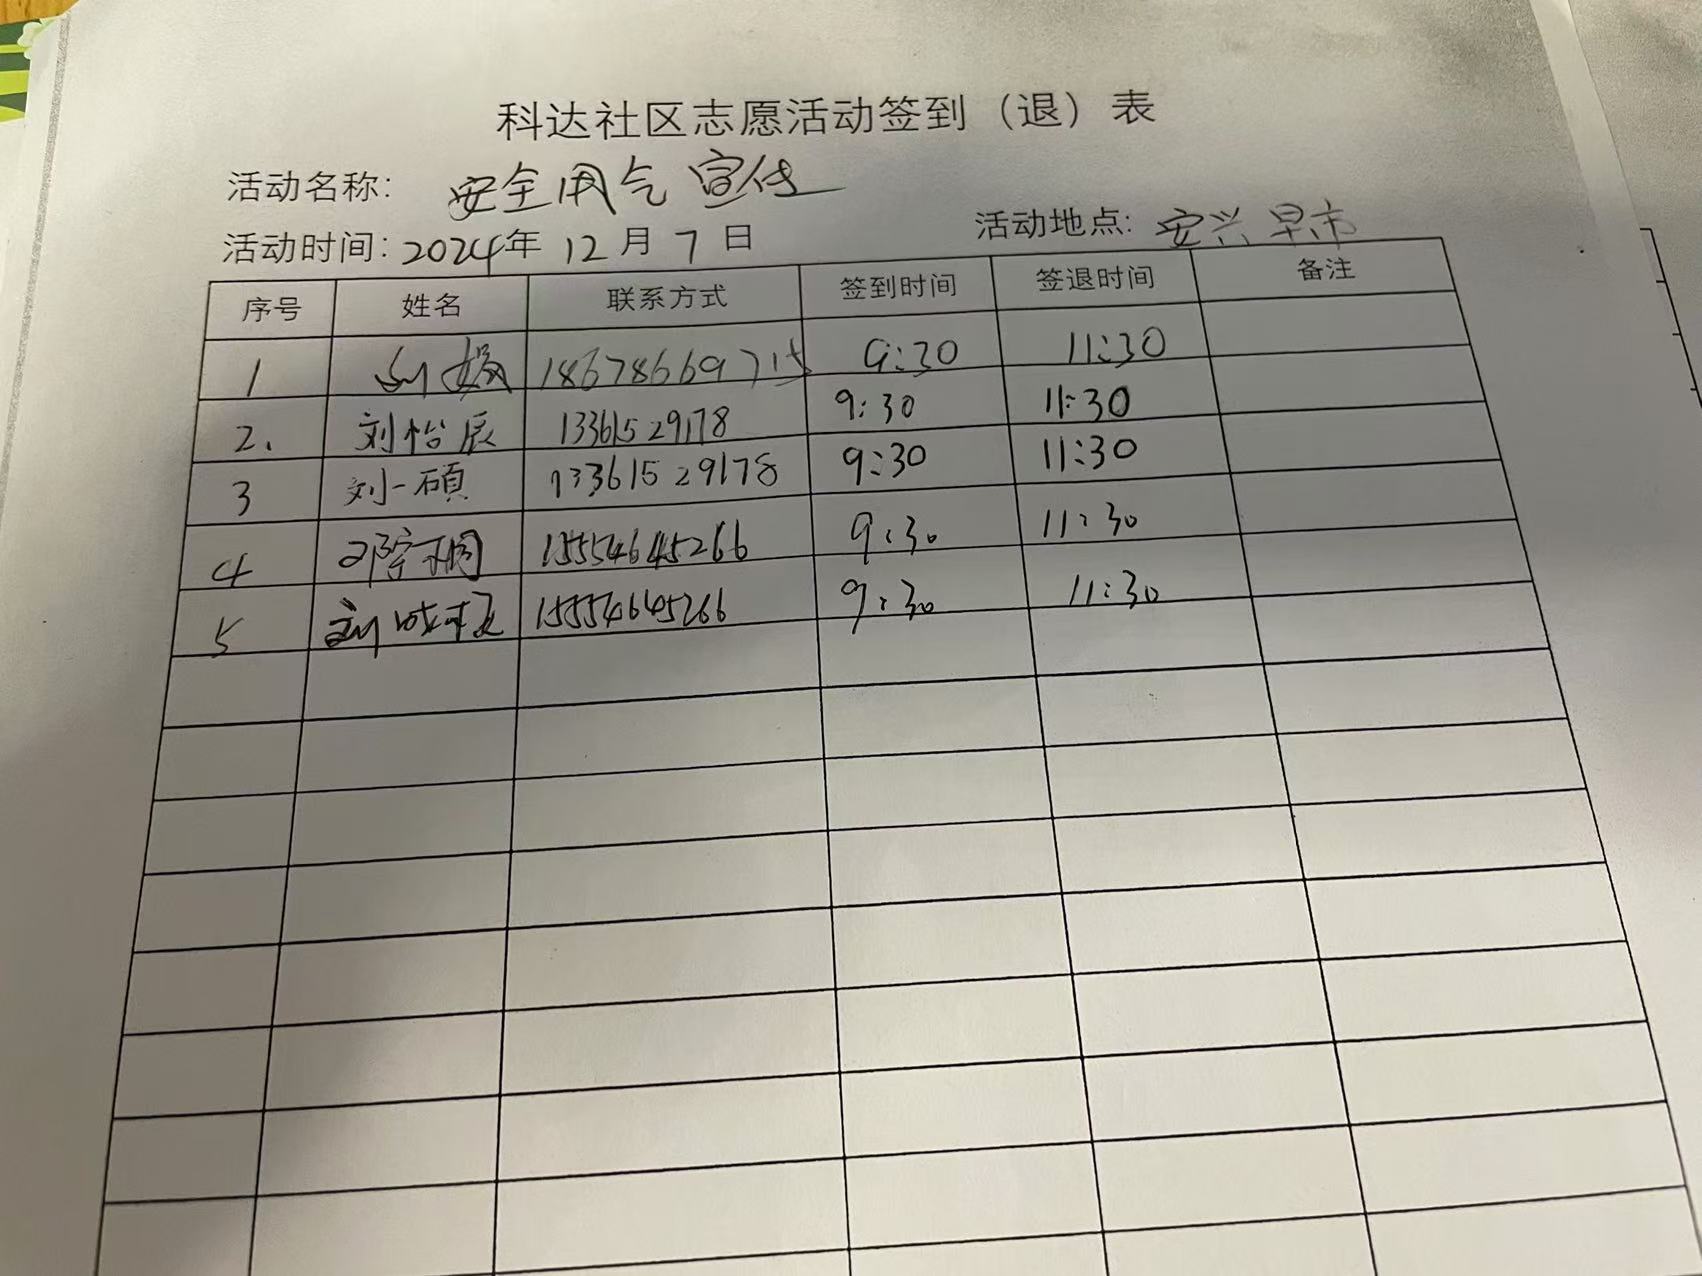 科达社区志愿活动签到（退）表
活动名称： 安全用气宣传
活动时间：2024年 12月 7日 活动地点: 安兴早市
序号 姓名 联系方式 签到时间 签退时间 备注
1 刘娟 18678669715 9:30 11:30
2. 刘怡辰 13361529178 9:30 11:30
3 刘一硕 13361529178 9:30 11:30
4 15554645266 9:30 11:30
5 刘 15554645266 9:30 11:30